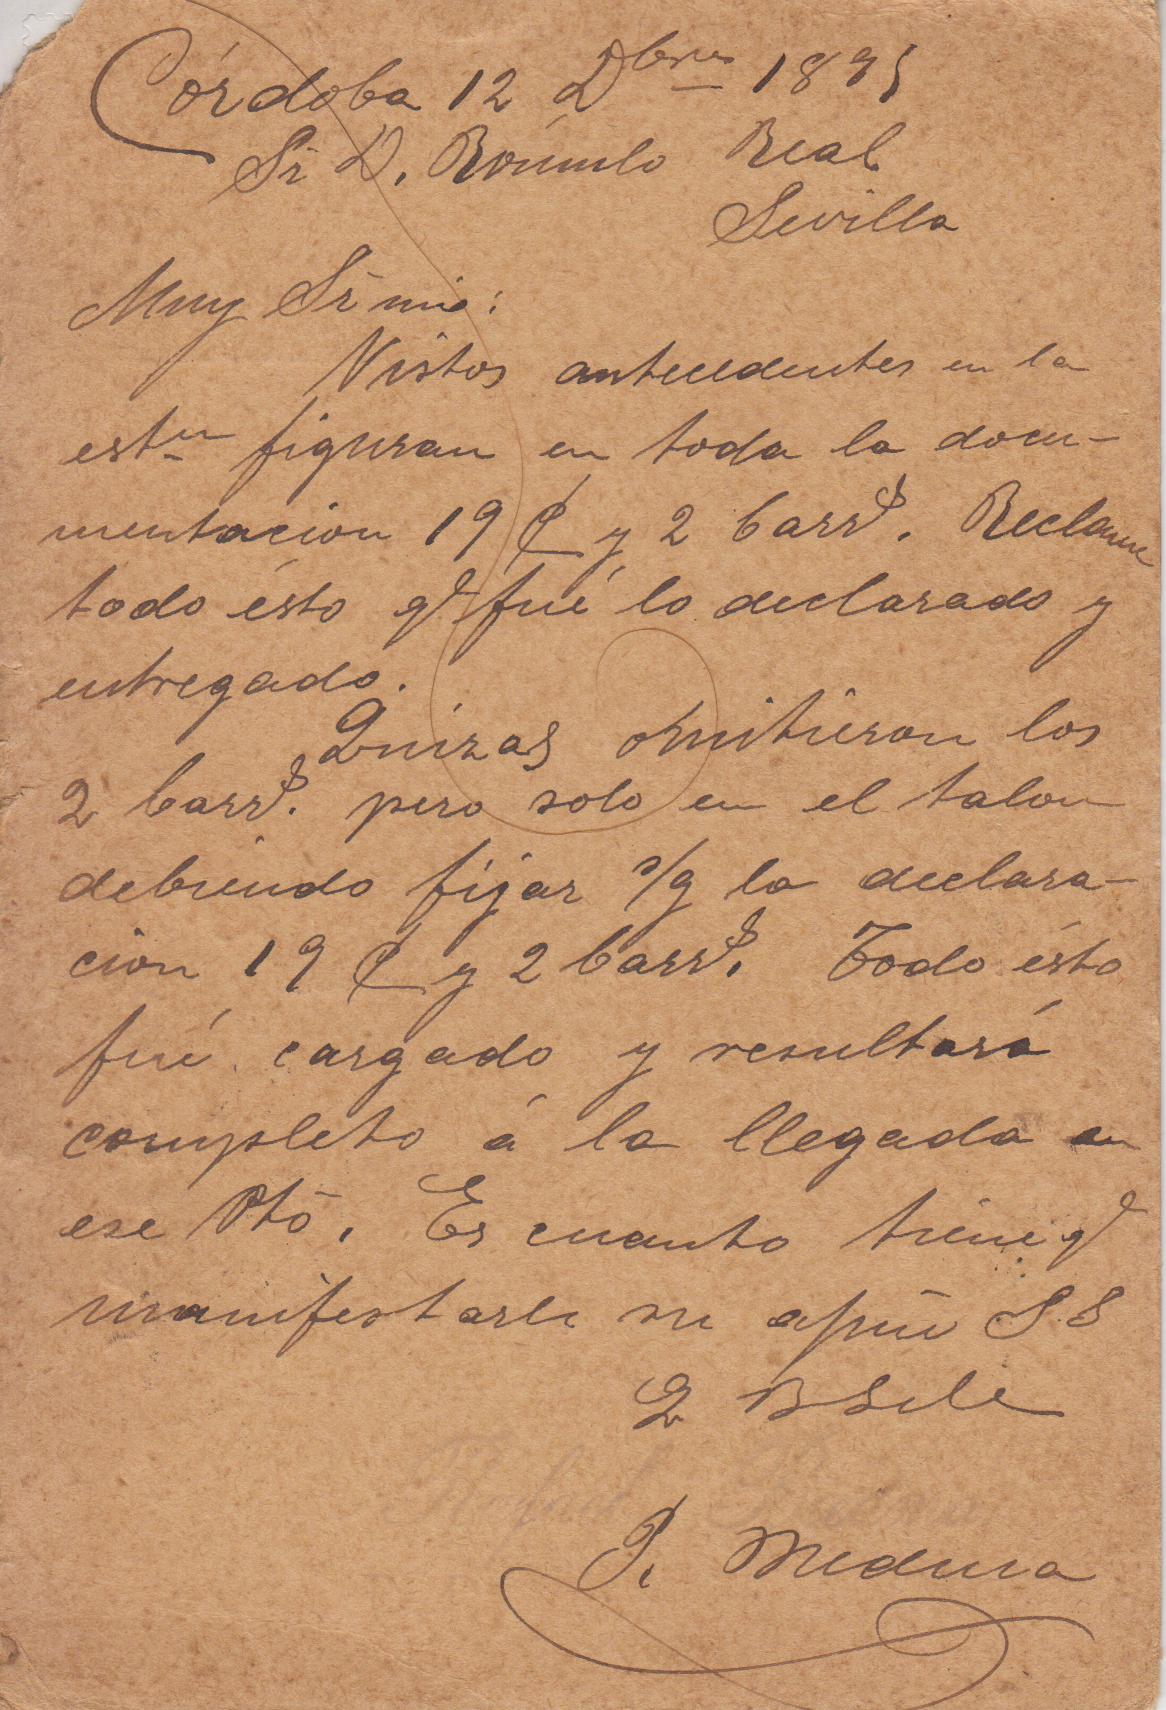 Córdoba 12 Dbre 1895
Sr D. Rómulo Real
Sevilla
Muy Sr mio:
Vistos antecedentes en la
estn figuran en toda la docu-
mentacion 19 C y 2 barrs. Reclame
todo ésto q fué lo declarado y
entregado.
Quizas omitieron los
2 barrs. pero solo en el talon
debiendo fijar s/g la declara-
cion 19 C y 2 barrs. Todo ésto
fué cargado y resultará
completo á la llegada en
ese Pto. Es cuanto tiene q
manifestarle su S S
Q B S M
R Medina